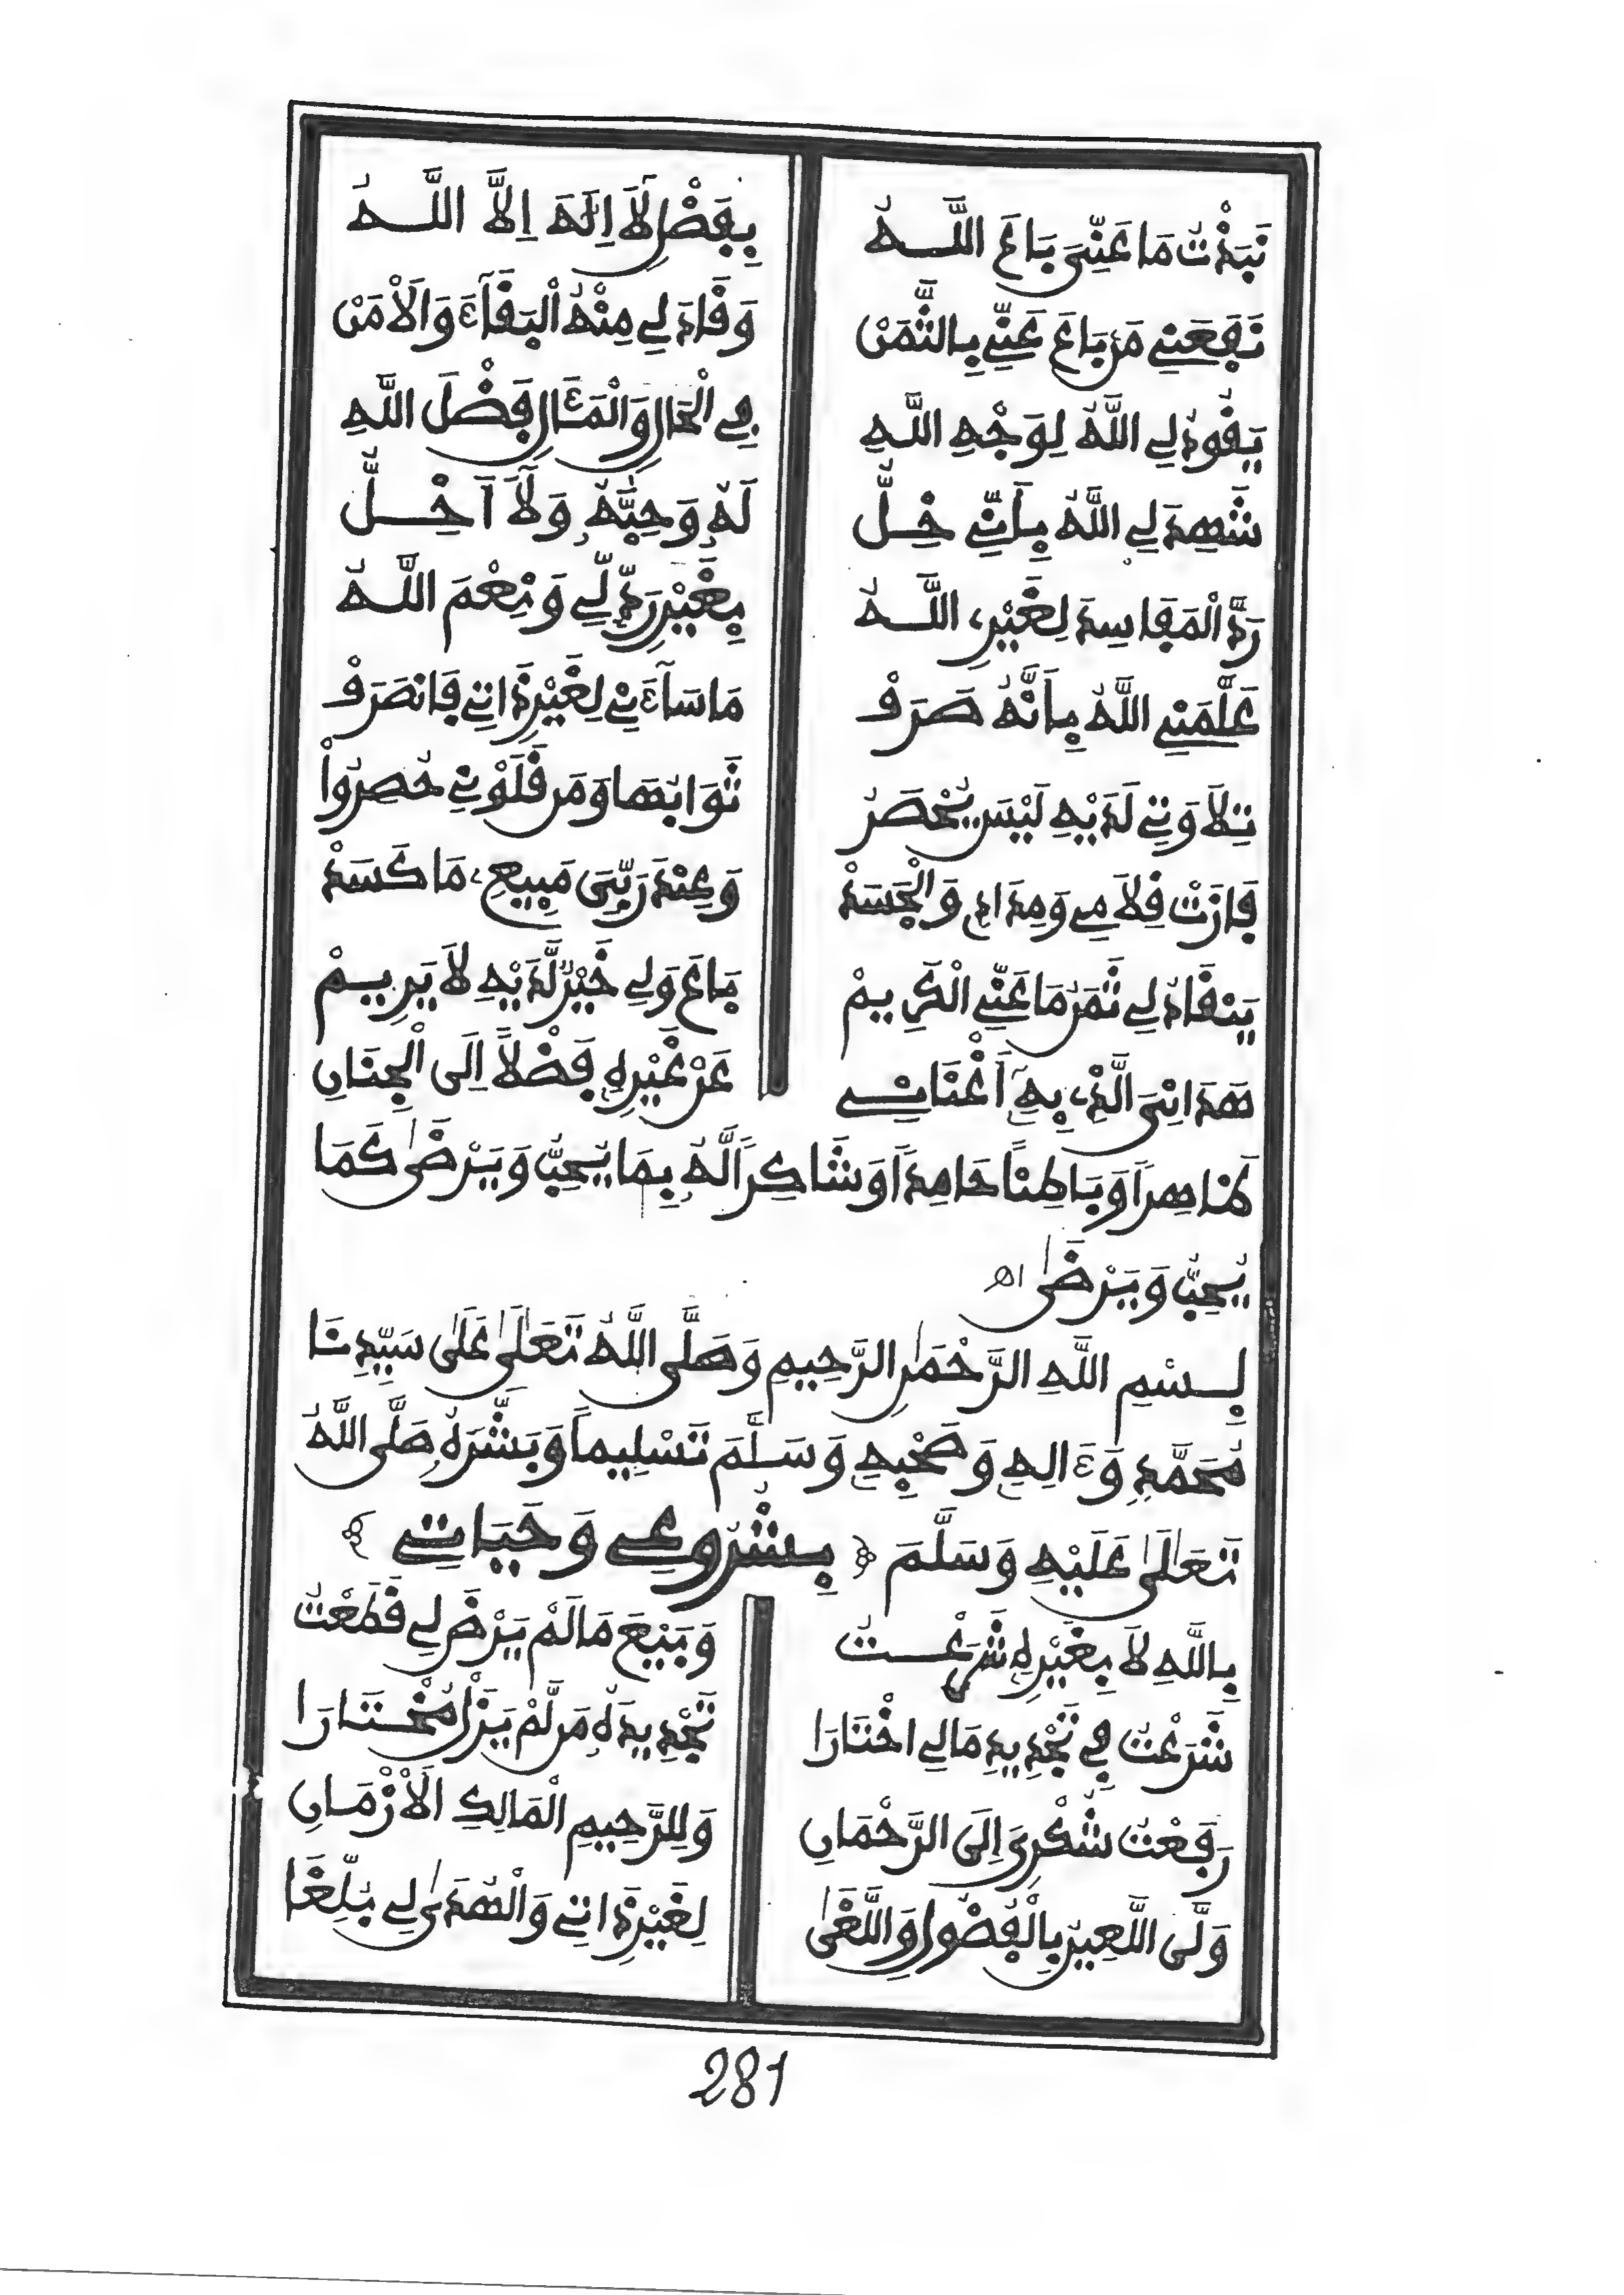 نَبَذْتُ مَا عَنِّىَ بَاعَ اللَّـهُ بِفَضْلِ لَآ اِلَهَ اِلَّا اللَّـهُ
نَفَعَنِى مَن بَاعَ عَنِّى بِالثَّمَنْ وَقَادَ لِى مِنْهُ الْبَقَآءَ وَالَامَنْ
يَقُودُ لِى اللَّهُ لِوَجْهِ اللَّهِ فِى الْحَالِ وَالْمَـَٔالِ فَضْلَ اللَّهِ
شَهِدَ لِى اللَّهُ بِأَنِّى خِـلُّ لَهُ وَحِبُّهُ وَلَآ أَخِـلُّ
رَدَّ الْمَفَاسِدَ لِغَيْرِى اللَّـهُ بِغَيْرِ رَدٍّ لِّى وَنِعْمَ اللَّـهُ
عَلَّمَنِى اللَّهُ بِأَنَّهُ صَرَفْ مَا سَآءَنِى لِغَيْرِ ذَاتِى فَانصَرَفْ
تِلَاوَتِى لَدَيْهِ لَيْسَ يُحْصَرُ ثَوَابُهَا وَمَن قَلَوْنِى حُصِرُواْ
فَازَتْ قِلَامِى وَمِدَادِى وَالْجَسَدْ وَعِنْدَ رَبِّىَ مَبِيعِى مَا كَسَدْ
يَنْقَادُ لِى ثَمَنُ مَا عَنِّى الْكَرِيمْ بَاعَ وَلِى خَيْرٌ لَّدَيْهِ لَا يَرِيـمْ
هَدَانِىَ الَّذِى بِهِ أَغْنَانِى عَنْ غَيْرِهِ فَضْلًا اِلَى الْجِنَانِ
ظَاهِراً وَبَاطِناً حَامِداً وَشَاكِراً لَّهُ بِمَا يُحِبُّ وَيَرْضَى كَمَا
يُحِبُّ وَيَرْضَى اه
بِسْمِ اللَّهِ الرَّحْمَنِ الرَّحِيمِ وَصَلَّى اللَّهُ تَعَلَى عَلَى سَيِّدِنَا
مُحَمَّدٍ وَءَالِهِ وَصَحْبِهِ وَسَلَّمَ تَسْلِيماً وَبَشَّرَهُ صَلَّى اللَّهُ
تَعَالَى عَلَيْهِ وَسَلَّمَ بِشُرُوعِى وَحَيَاتِى
بِاللَّهِ لَا بِغَيْرِهِ شَرَعْـتُ وَبَيْعَ مَا لَمْ يَرْضَ لِى قَطَعْتُ
شَرَعْتُ فِى تَجْدِيدِ مَا لِى اخْتَارَا تَجْدِيدَهُ مَن لَّمْ يَزَلْ مُخْـتَارَا
رَفَعْتُ شُكْرِىَ اِلَى الرَّحْمَانِ وَلِلرَّحِيمِ الْمَالِكِ الَازْمَـانِ
وَلَّى اللَّعِينُ بِالْفُضُولِ وَاللَّغَى لِغَيْرِ ذَاتِى وَالْهُدَى لِى بَلَّغَا
281